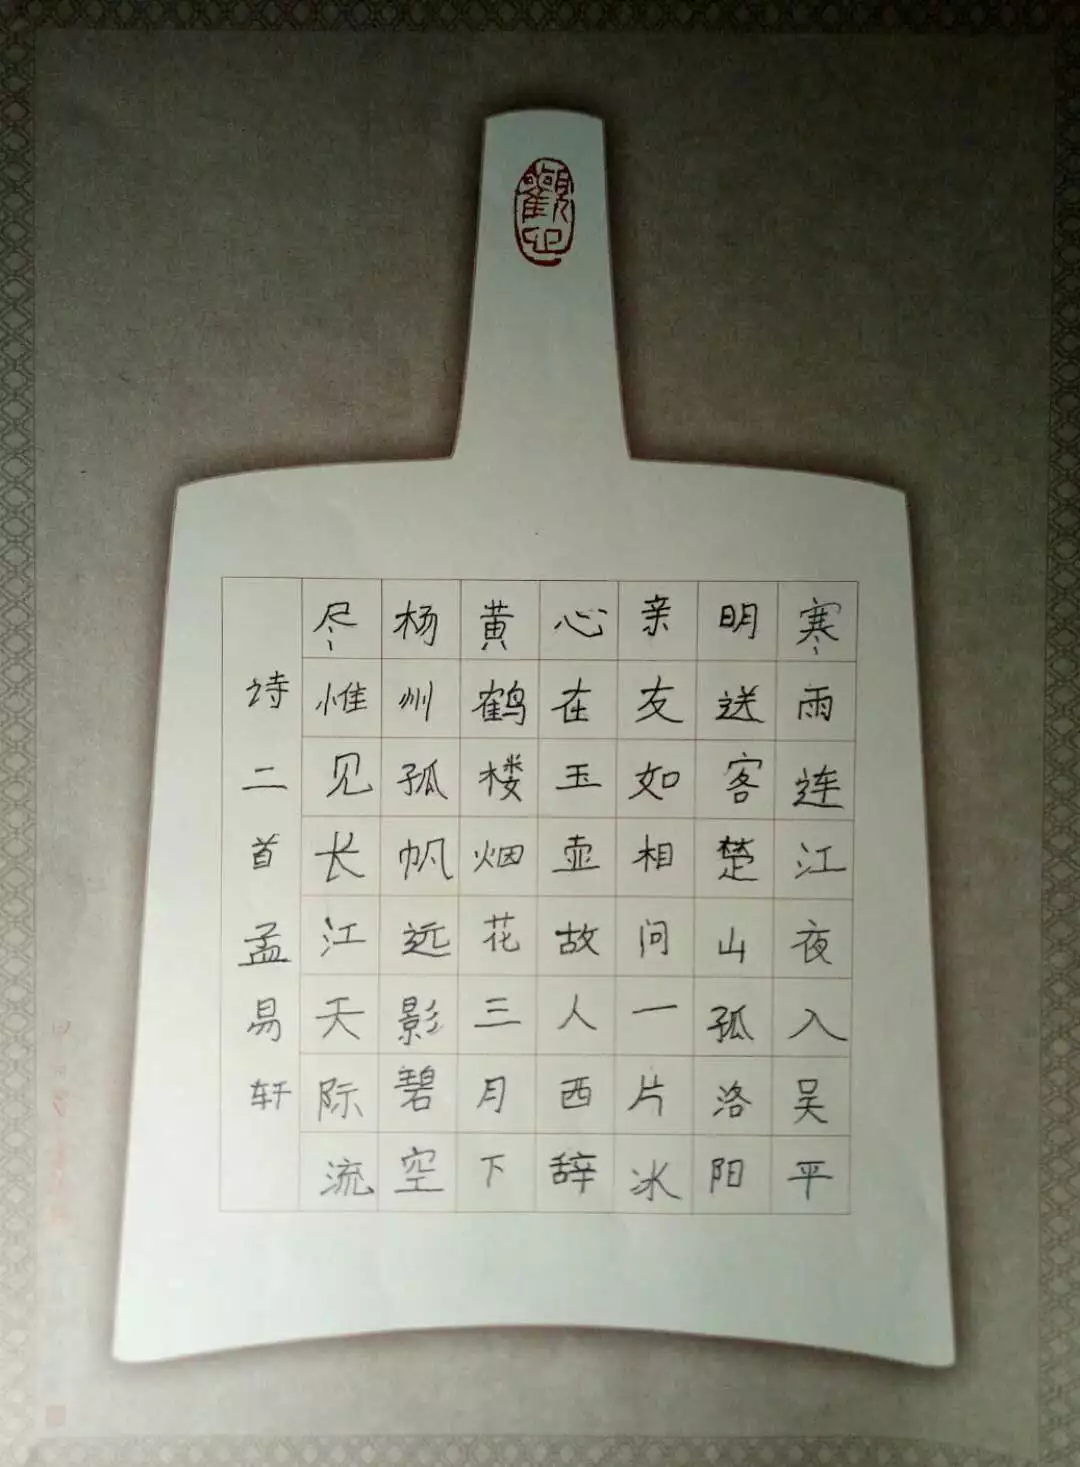 觀心
寒雨连江夜入吴平
明送客楚山孤洛阳
亲友如相问一片冰
心在玉壶故人西辞
黄鹤楼烟花三月下
杨州孤帆远影碧空
尽惟见长江天际流
诗二首孟易轩